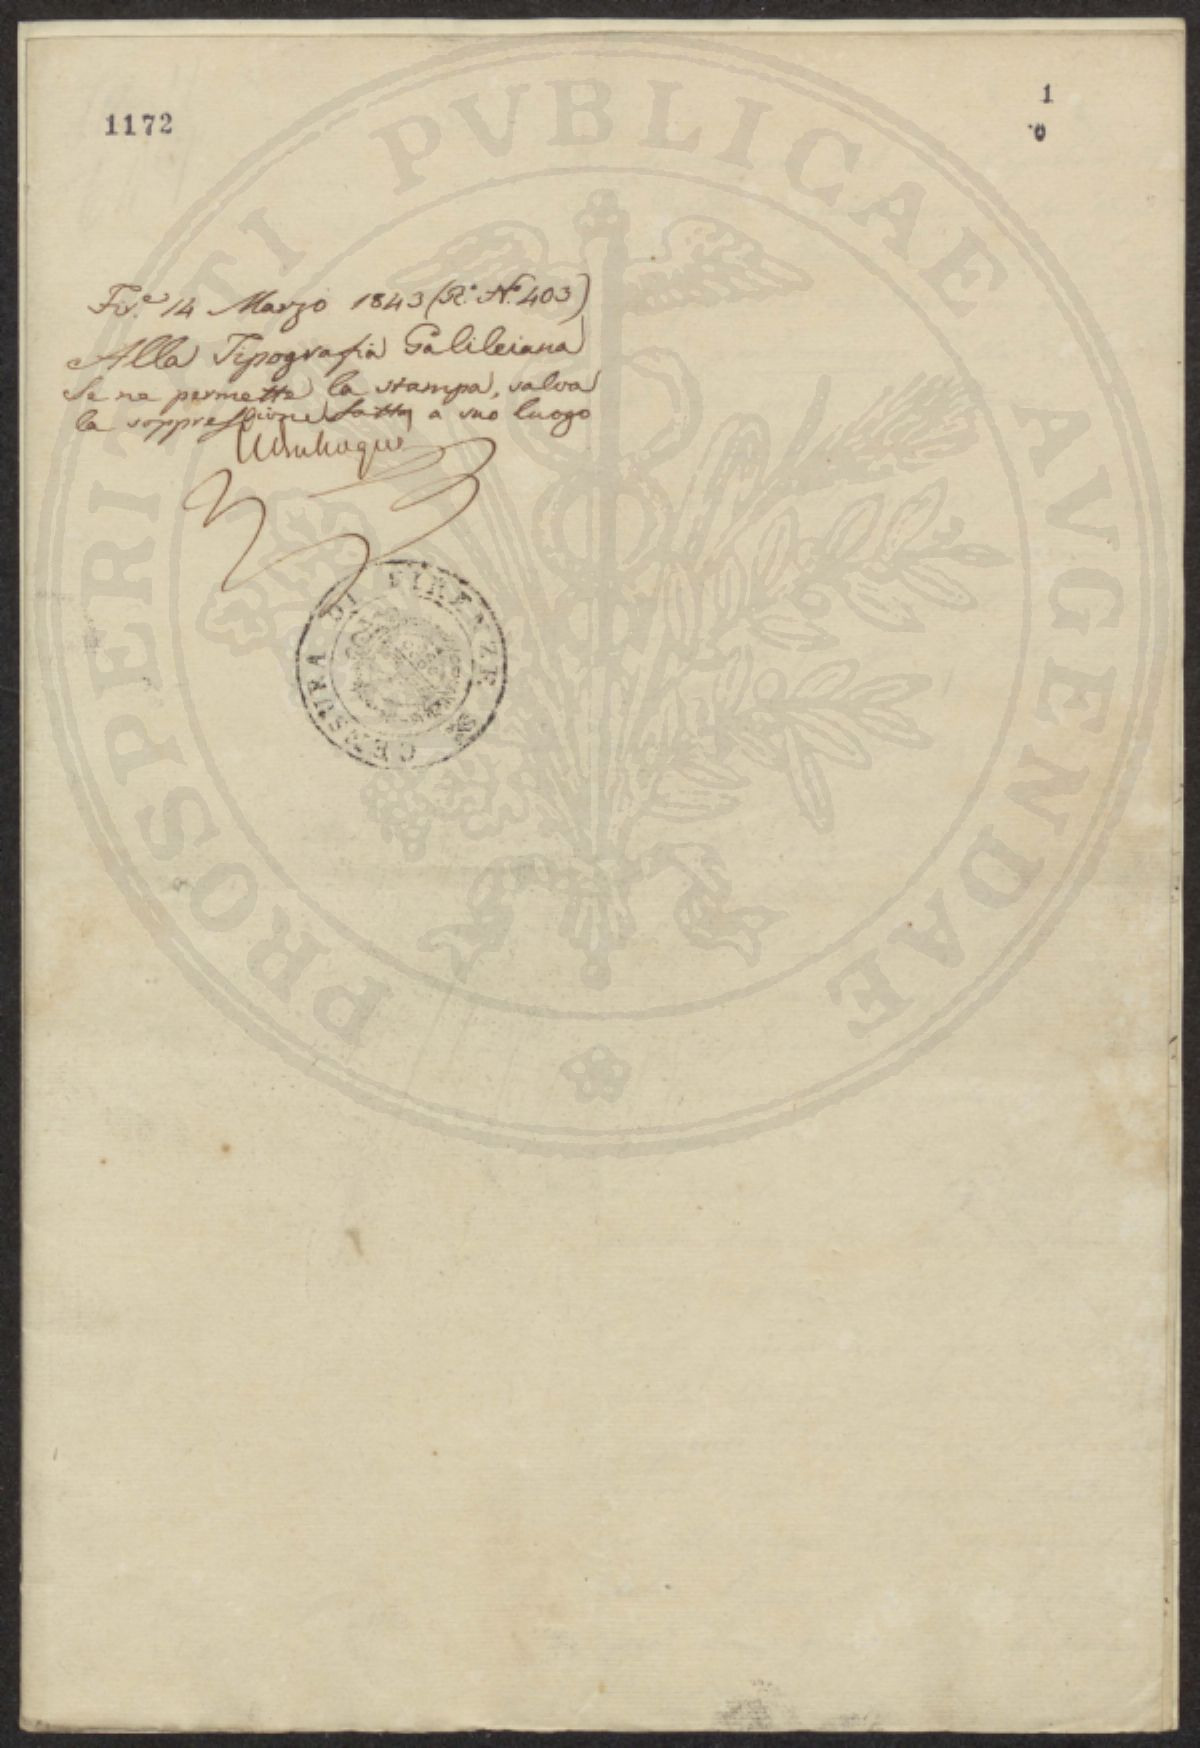 1172
1
0
Fir.e 14 Marzo 1843 (R.o N.o 403)
Alla Tipografia Galileiana
Se ne permette la stampa, salva
la soppressione fatta a suo luogo
CENSURA DI FIRENZE
PROSPERITATI PVBLICAE AVGENDAE